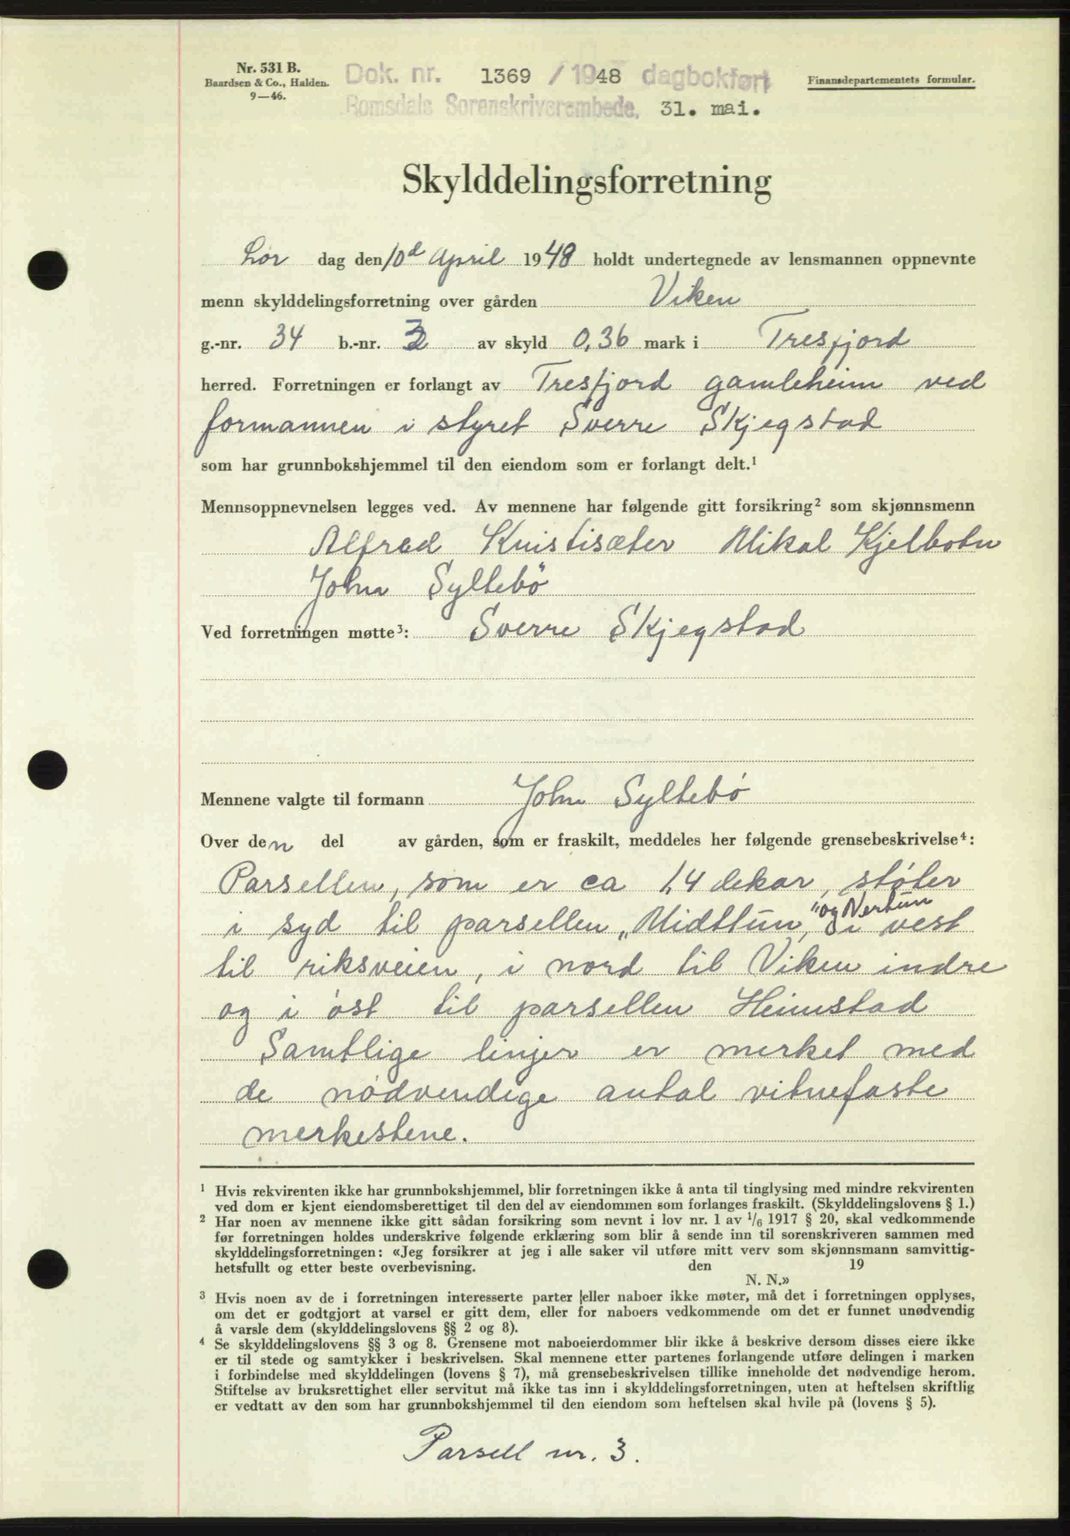 Nr. 531 B.
Baardsen & Co., Halden.
9—46.
Dok. nr. 1369 / 1948 dagbokført
Romsdals Sorenskriverembede, 31. mai.
Finansdepartementets formular.
Skylddelingsforretning
Lør dag den 10d April 1948 holdt undertegnede av lensmannen oppnevnte
menn skylddelingsforretning over gården Viken
g.-nr. 34 b.-nr. av skyld 0,36 mark i Tresfjord
herred. Forretningen er forlangt av Tresfjord gamleheim ved
formannen i styret Sverre Skjegstad
som har grunnbokshjemmel til den eiendom som er forlangt delt.¹
Mennsoppnevnelsen legges ved. Av mennene har følgende gitt forsikring² som skjønnsmenn
Alfred Knistisæter Mikal Kjelbotn
John Syltebö
Ved forretningen møtte³: Sverre Skjegstad
Mennene valgte til formann John Syltebö
Over den del av gården, som er fraskilt, meddeles her følgende grensebeskrivelse⁴:
Parsellen, som er ca 1,4 dekar, støter
i syd til parsellen „Midttun," og Nertun i vest
til riksveien, i nord til Viken indre
og i öst til parsellen Heimstad
Samtlige linjer er merket med
de nødvendige antal vitnefaste
merkestene.
¹ Hvis rekvirenten ikke har grunnbokshjemmel, blir forretningen ikke å anta til tinglysing med mindre rekvirenten
ved dom er kjent eiendomsberettiget til den del av eiendommen som forlanges fraskilt. (Skylddelingslovens § 1.)
² Har noen av mennene ikke gitt sådan forsikring som nevnt i lov nr. 1 av 1/6 1917 § 20, skal vedkommende
før forretningen holdes underskrive følgende erklæring som blir å sende inn til sorenskriveren sammen med
skylddelingsforretningen: «Jeg forsikrer at jeg i alle saker vil utføre mitt verv som skjønnsmann samvittig-
hetsfullt og etter beste overbevisning. den 19
N. N.»
³ Hvis noen av de i forretningen interesserte parter eller naboer ikke møter, må det i forretningen opplyses,
om det er godtgjort at varsel er gitt dem, eller for naboers vedkommende om det er funnet unødvendig
å varsle dem (skylddelingslovens §§ 2 og 8).
⁴ Se skylddelingslovens §§ 3 og 8. Grensene mot naboeierdommer blir ikke å beskrive dersom disses eiere ikke
er til stede og samtykker i beskrivelsen. Skal mennene etter partenes forlangende utføre delingen i marken
i forbindelse med skylddelingen (lovens § 7), må grensebeskrivelsen tillike inneholde det nødvendige herom.
Stiftelse av bruksrettighet eller servitut må ikke tas inn i skylddelingsforretningen, uten at heftelsen skriftlig
er vedtatt av den som har grunnbokshjemmel til den eiendom som heftelsen skal hvile på (lovens § 5).
Parsell nr. 3.